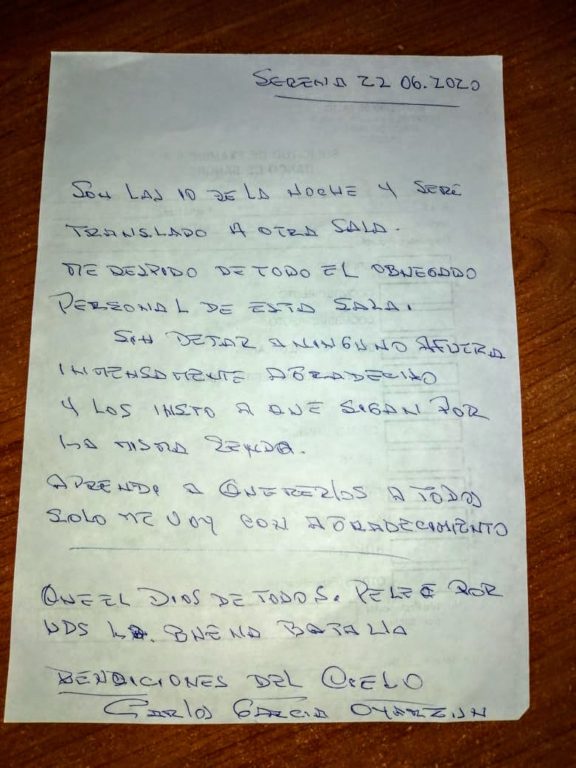 SERENA 22 06.2020
SON LAS 10 DE LA NOCHE Y SERÉ
TRANSLADO A OTRA SALA.
ME DESPIDO DE TODO EL OBNEGADO
PERSONAL DE ESTA SALA.
SIN DEJAR A NINGUNO AFUERA
INTENSAMENTE AGRADECIDO
Y LOS INSTO A QUE SIGAN POR
LA MISMA SENDA.
APRENDI A QUERERLOS A TODOS
SOLO ME VOY CON AGRADECIMIENTO
QUE EL DIOS DE TODOS. PELEE POR
UDS LA. BUENA BATALLA
BENDICIONES DEL CIELO
CARLOS GARCIA OYARZUN